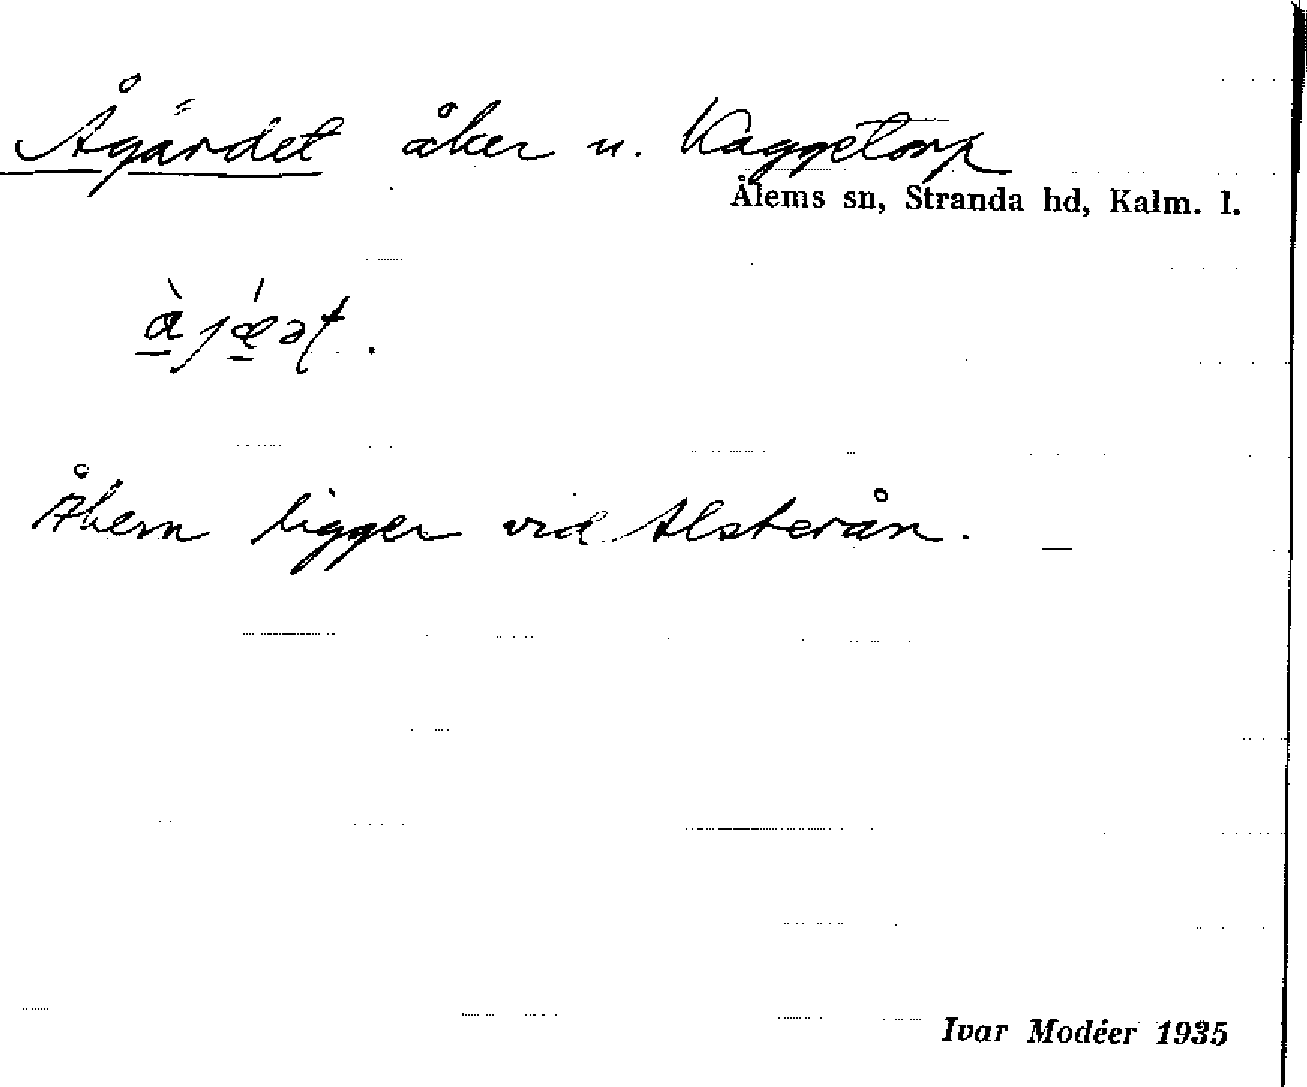 Ågärdet åker u. Kaggetorp
Ålems sn, Stranda hd, Kalm. l.
Åkern ligger vid Alsterån. —
Ivar Modéer 1935